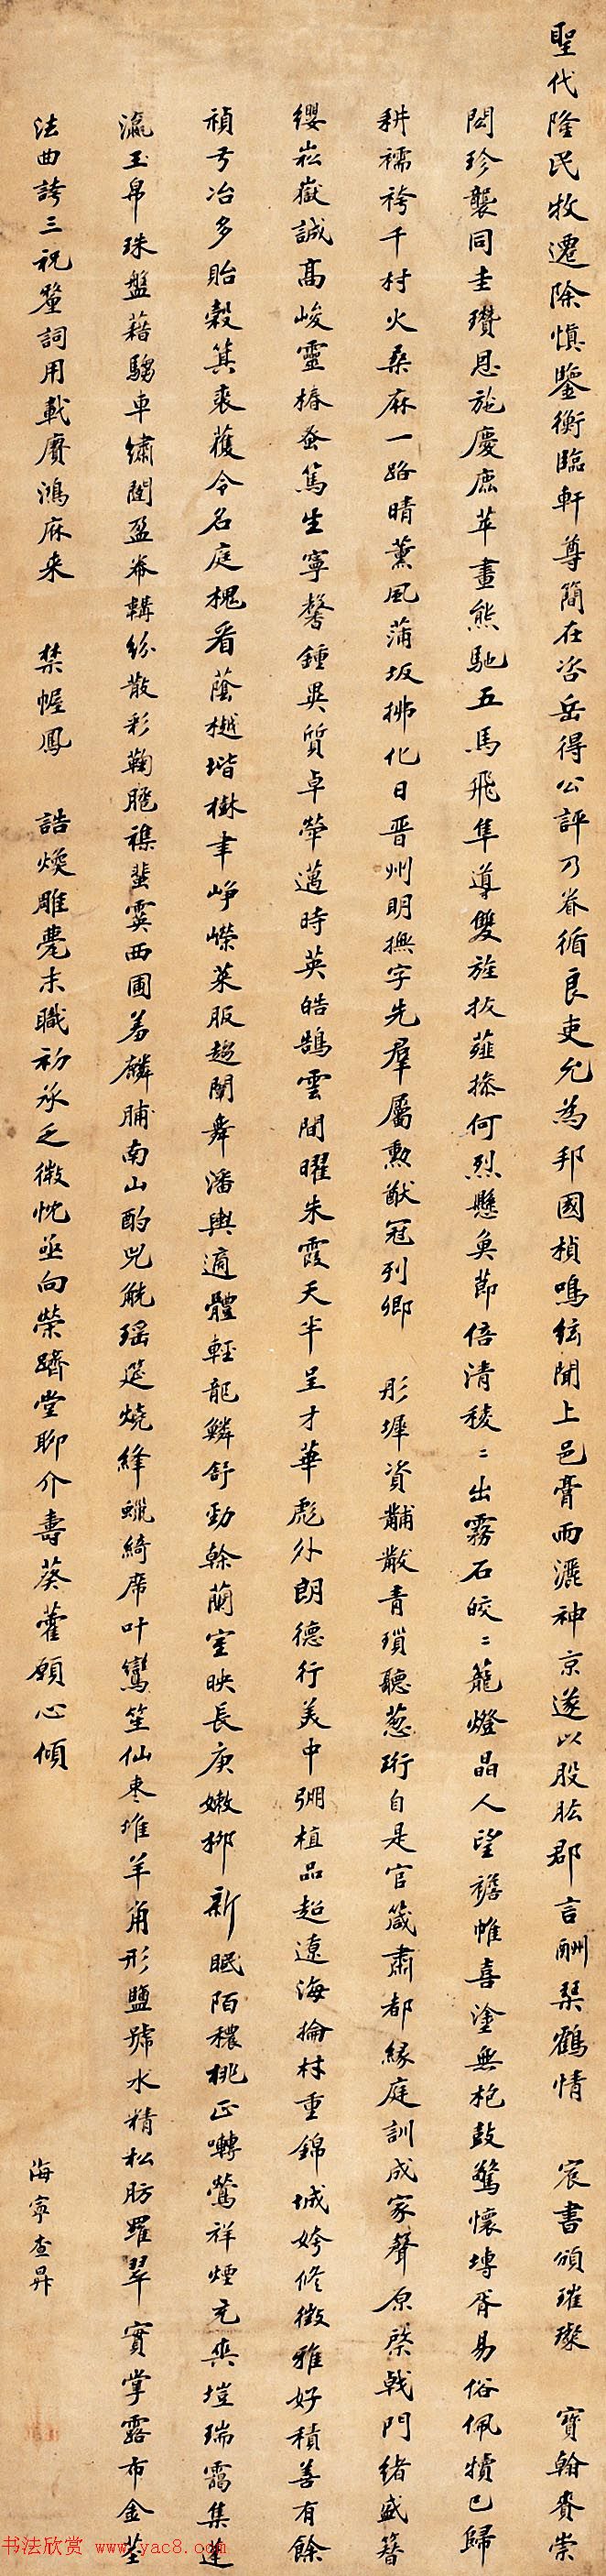 聖代隆民牧遷除慎鑒衡臨軒尊簡在咨岳得公評乃眷循良吏允為邦國楨鳴絃聞上邑膏雨灑神京遂以股肱郡言酬琴鶴情 宸書頒璀璨 寶翰賚崇
閎珍襲同圭瓚恩施慶鹿苹畫熊馳五馬飛隼導雙旌拔薤操何烈懸魚節倍清稜〻出霧石皎〻籠燈晶人望襜帷喜塗無枹鼓驚懷塼胥易俗佩犢已歸
耕襦袴千村火桑麻一路晴薰風蒲坂拂化日晋州明撫字先羣屬勲猷冠列卿 彤墀資黼黻青瑣聽葱珩自是官箴肅都緣庭訓成家聲原棨戟門緒盛簪
纓崧嶽誠高峻靈椿並篤生寧馨鍾異質卓犖邁時英皓鵠雲間曜朱霞天半呈才華彪外朗德行美中弸植品超遼海掄材重錦城姱修徵雅好積善有餘
禎弓冶多貽穀箕裘蒦令名庭槐看蔭樾堦樹聿崢嶸萊服趨闈舞潘輿適體輕龍鱗舒勁榦蘭室映長庚嫩栁新眠陌穠桃正囀鶯祥煙充爽塏瑞靄集蓬
瀛玉帛珠盤藉駟車繡闥盈絭韝紛散彩鞠䠆襍蜚霙西圃羞麟脯南山酌兕觥瑶筵燒絳蠟綺席叶鸞笙仙棗堆羊角形鹽號水精松肪羅翠實掌露布金莖
法曲誇三祝蕪詞用載賡鴻庥来 禁幄鳳 誥煥雕甍末職初承乏微忱亟向榮躋堂聊介壽葵藿願心傾
海寧查昇
书法欣赏 www.yac8.com